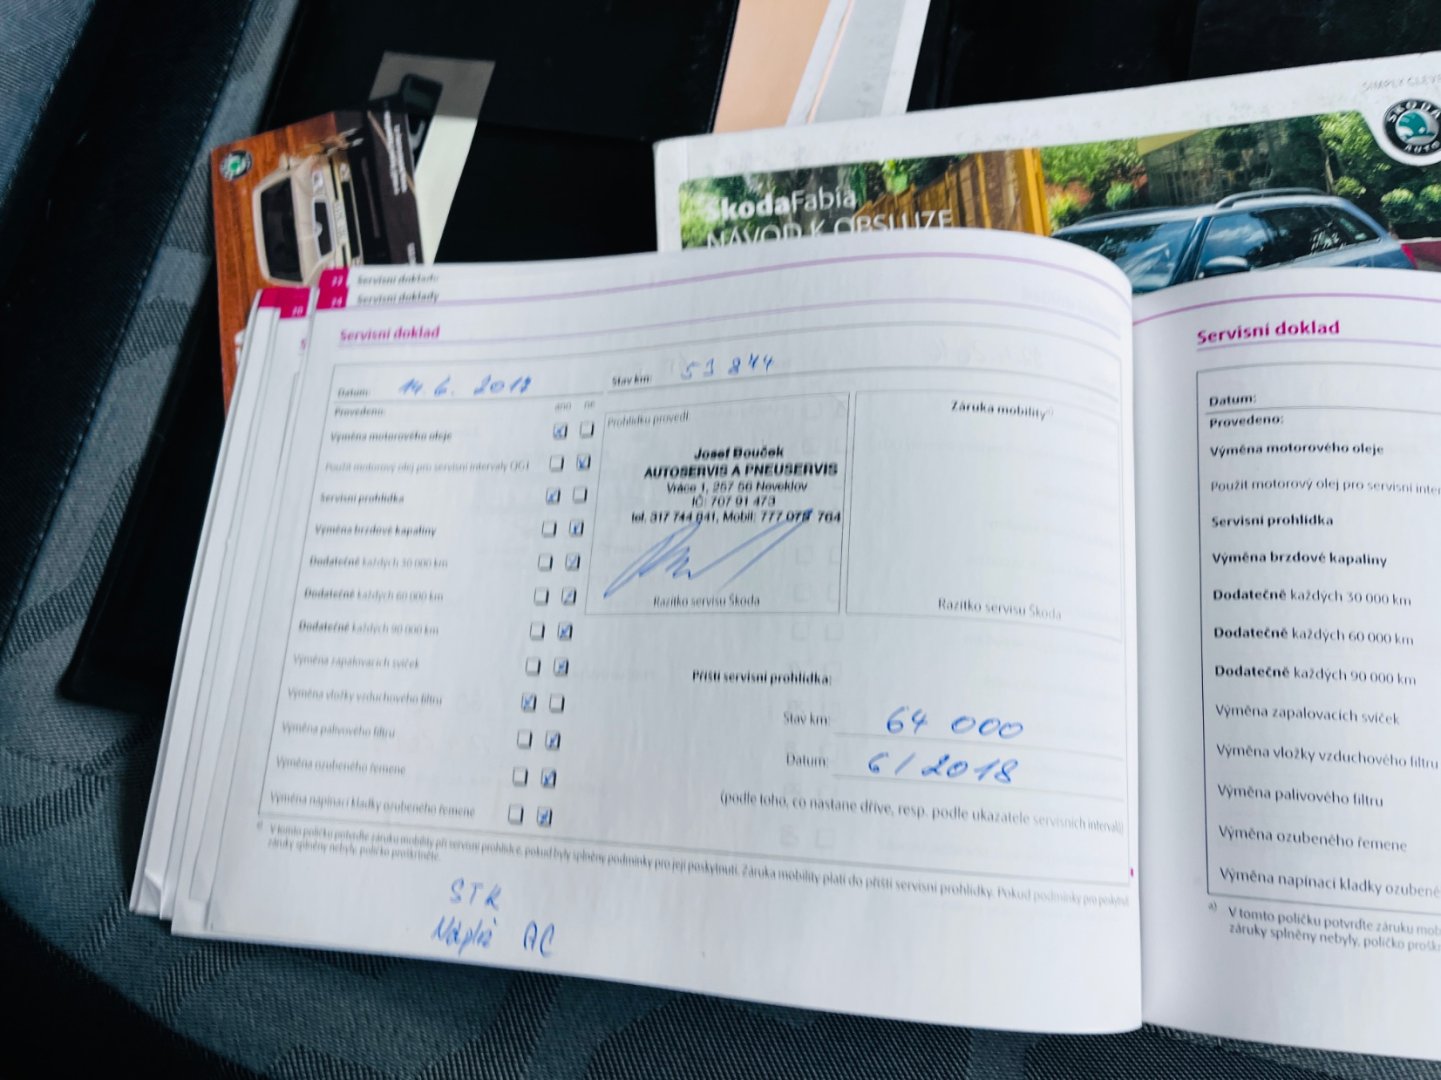 SIMPLY CLEVE
ŠKODA
AUTO
ŠkodaFabia
NÁVOD K OBSLUZE
22 Servisní doklady
24 Servisní doklady
20
Servisní doklad
Datum: 14. 6. 2018
Stav km: 53 844
Provedeno:
ano ne
Výměna motorového oleje
Použit motorový olej pro servisní intervaly QG1
Servisní prohlídka
Výměna brzdové kapaliny
Dodatečně každých 30 000 km
Dodatečně každých 60 000 km
Dodatečně každých 90 000 km
Výměna zapalovacích svíček
Výměna vložky vzduchového filtru
Výměna palivového filtru
Výměna ozubeného řemene
Výměna napínací kladky ozubeného řemene
Prohlídku provedl:
Josef Bouček
AUTOSERVIS A PNEUSERVIS
Vráce 1, 257 56 Neveklov
IČ: 707 91 473
tel. 317 744 841, Mobil: 777 078 764
Razítko servisu Škoda
Záruka mobility a)
Razítko servisu Škoda
Příští servisní prohlídka:
Stav km: 64 000
Datum: 6/2018
(podle toho, co nastane dříve, resp. podle ukazatele servisních intervalů)
a) V tomto políčku potvrďte záruku mobility při servisní prohlídce, pokud byly splněny podmínky pro její poskytnutí. Záruka mobility platí do příští servisní prohlídky. Pokud podmínky pro poskytnutí
záruky splněny nebyly, políčko proškrtněte.
STK
Náplň AC
Servisní doklad
Datum:
Provedeno:
Výměna motorového oleje
Použit motorový olej pro servisní inter
Servisní prohlídka
Výměna brzdové kapaliny
Dodatečně každých 30 000 km
Dodatečně každých 60 000 km
Dodatečně každých 90 000 km
Výměna zapalovacích svíček
Výměna vložky vzduchového filtru
Výměna palivového filtru
Výměna ozubeného řemene
Výměna napínací kladky ozubené
a) V tomto políčku potvrďte záruku mob
záruky splněny nebyly, políčko prošk